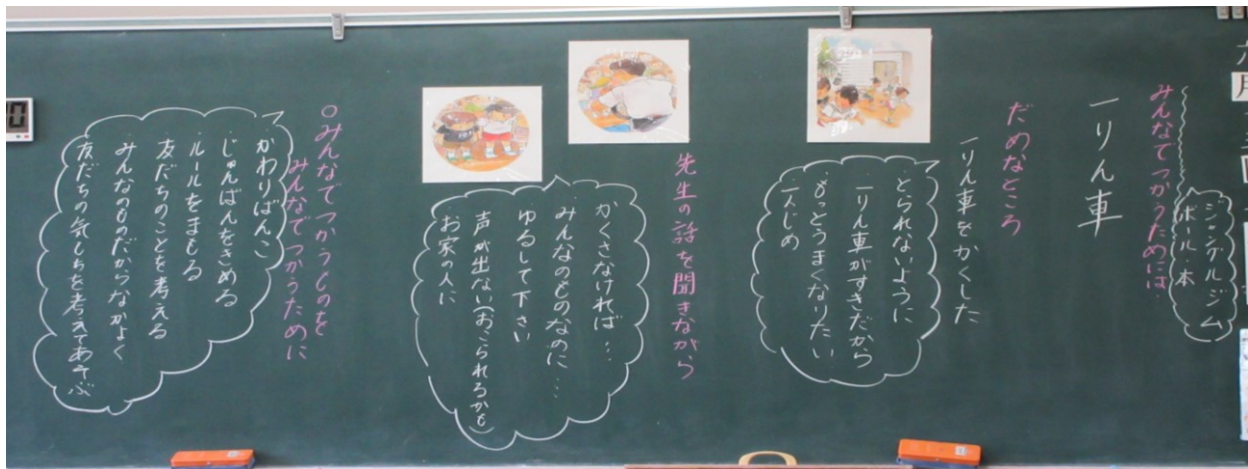 みんなでつかうためには…
ジャングルジム
ボール・本
一りん車
だめなところ
一りん車をかくした
とられないように
一りん車がすきだから
もっとうまくなりたい
一人じめ
先生の話を聞きながら
かくさなければ…
みんなのものなのに…
ゆるして下さい
声が出ない(おこられるかも)
お家の人に
○みんなでつかうものを
みんなでつかうために
かわりばんこ
じゅんばんをきめる
ルールをまもる
友だちのことを考える
みんなのものだからなかよく
友だちの気もちを考えてあそぶ